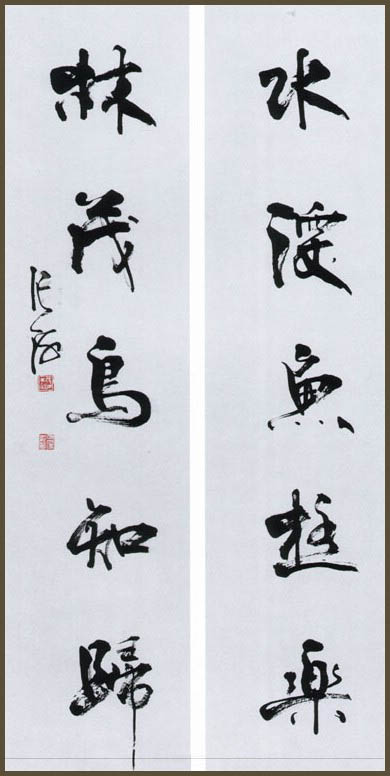 水深魚極樂
林茂鳥知歸